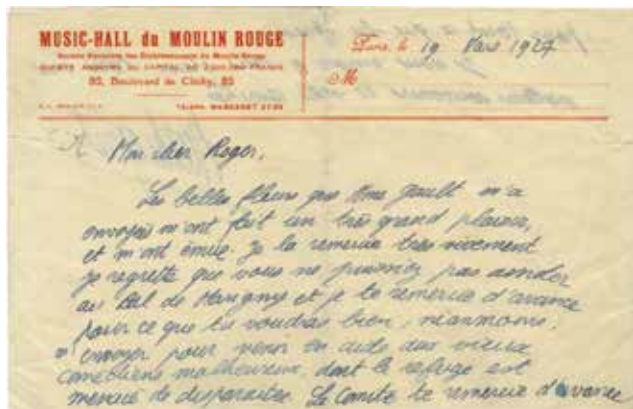 MUSIC-HALL du MOULIN ROUGE
SOCIÉTÉ ANONYME AU CAPITAL DE FRANCS
Boulevard de Clichy,
Paris, le 19 Mars 1927
M
TÉLÉPH. MARCADET
Mon cher Roger,
Les belles fleurs que Mme Gault m'a
envoyées m'ont fait un très grand plaisir,
et m'ont émue. Je la remercie très vivement
je regrette que vous ne puissiez pas assister
au Bal de Marigny et je te remercie d'avance
pour ce que tu voudras bien, néanmoins,
m'envoyer pour venir en aide aux vieux
comédiens malheureux dont le refuge est
menacé de disparaitre. Le Comité te remercie d'avance